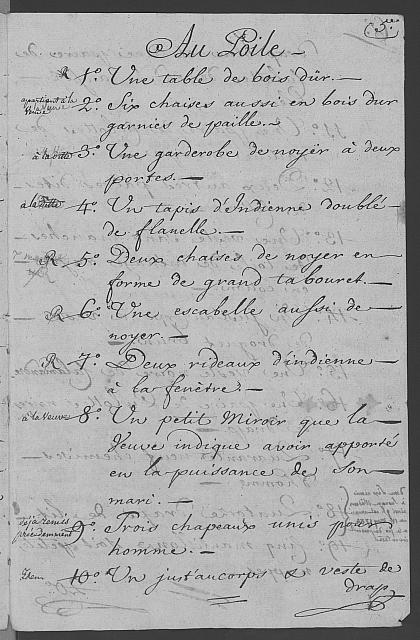 Au Poile.—
R 1.° Une table de bois dûr.—
appartient à la Veuve 2.° Six chaises aussi en bois dur
garnies de paille.~
à la ditte 3.° Une garderobe de noyer à deux
portes.—
à la ditte 4.° Un tapis d'Indienne doublé
de flanelle.—
R 5.° Deux chaises de noyer en
forme de grand tabouret.—
R 6.° Une escabelle aussi de
noyer.—
R 7.° Deux rideaux d'indienne
à la fenêtre.—
à la Veuve 8.° Un petit Miroir que la
Veuve indique avoir apporté
en la puissance de son
mari.—
déjà remis précédemment 9.° Trois chapeaux unis pour
homme.—
Idem 10.° Un just'aucorps & veste de
drap